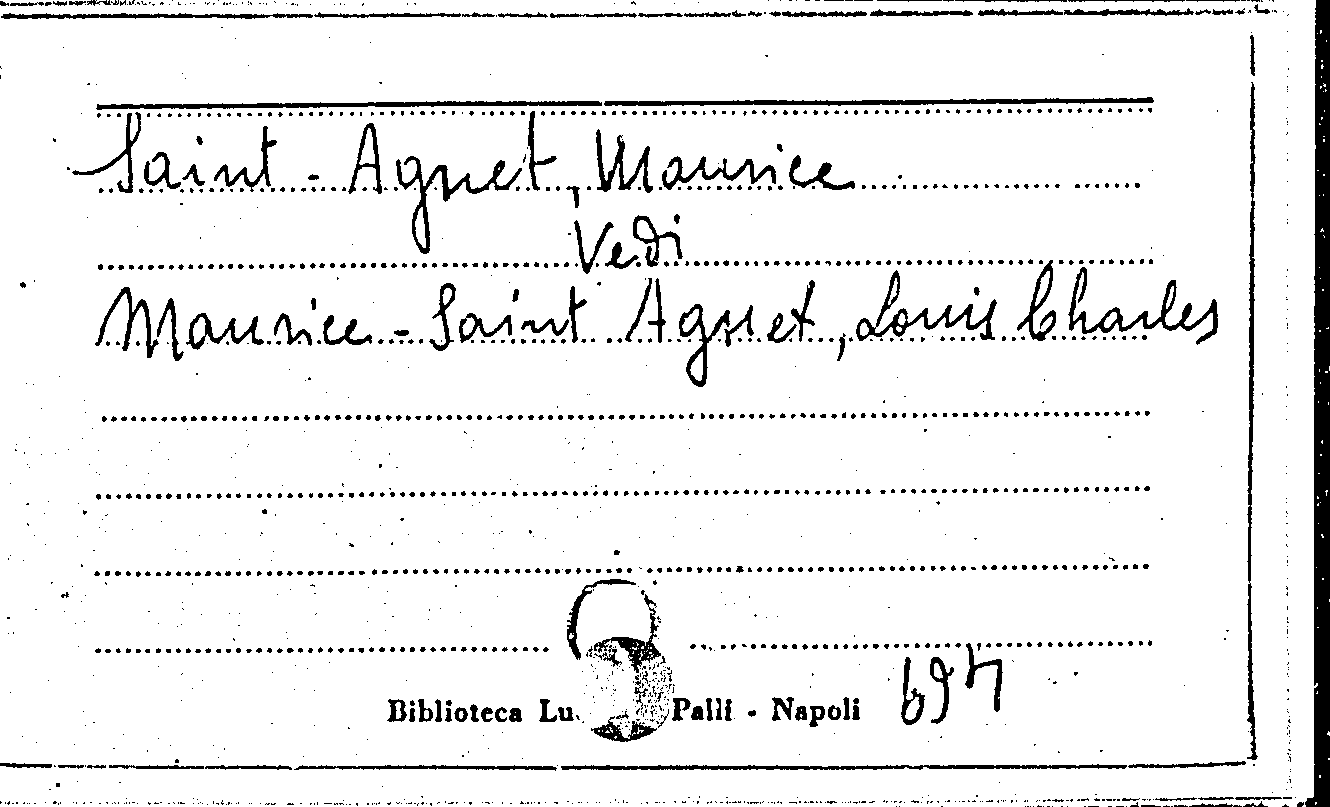 Saint - Agnet, Maurice
Vedi
Maurice - Saint Agnet, Louis Charles
Biblioteca Lu Palli - Napoli